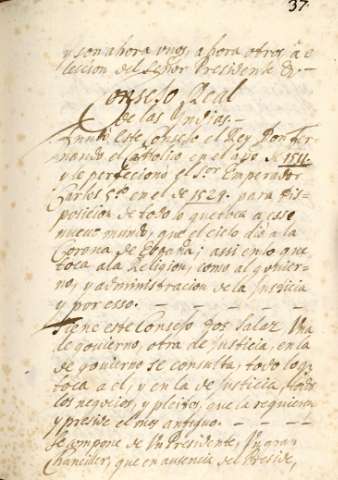 37.
y son ahora unos, ahora otros, à e
leccion del Señor Presidente &.
Consejo Real
de las Yndias.
Fundò este Consejo el Rey Don fer
nando el catholico en el año de 1511.
y le perfeciono el Sor Emperador
Carlos 5to en el de 1524. para dis=
posicion de todo lo que toca a esse
nuevo mundo, que el cielo dio a la
Corona de España; assi en lo que
toca ala Religion, como al govier=
no, y administracion de la Justicia
y por esso.
Tiene este Consejo dos salas, Vna
de govierno, otra de justicia, en la
de govierno se consulta, todo loq
toca a el; y en la de justicia, todos
los negocios, y pleitos, que la requieren
y preside el mas antiguo.
Se compone de Vn Presidente, Vn gran
Chanciller, que en ausencia del Preside,